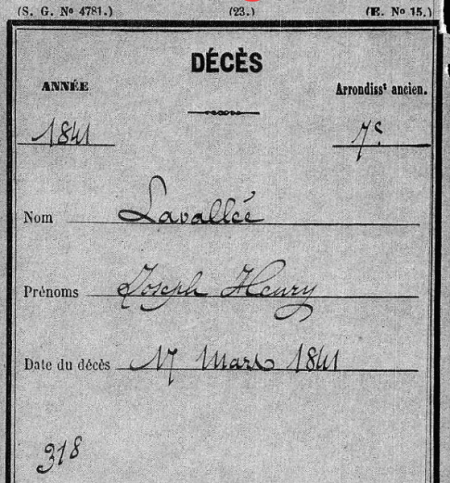 (S. G. Nº 4781.) (23.) (E. Nº 15.)
DÉCÈS
ANNÉE Arrondissᵗ ancien.
1841 7ᵉ
Nom Lavallée
Prénoms Joseph Henry
Date du décès 17 Mars 1841
318